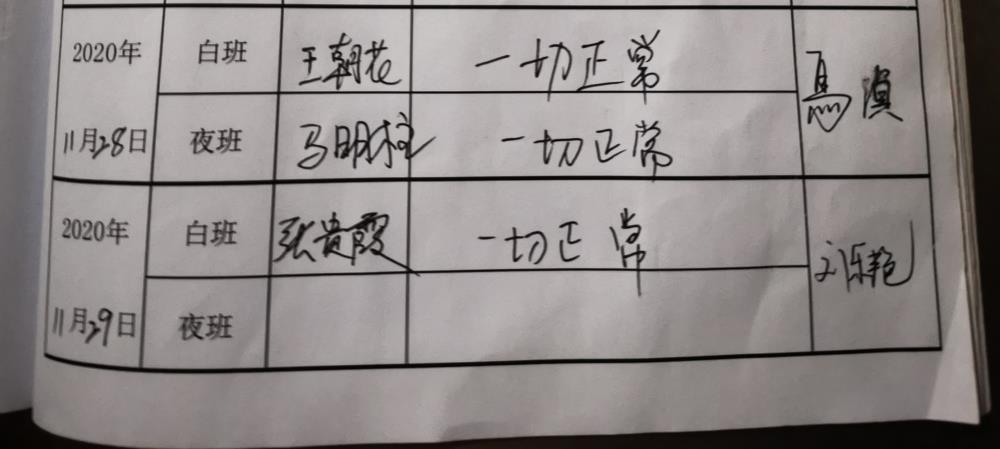 2020年 白班 王朝花 一切正常
11月28日 夜班 马明柱 一切正常
2020年 白班 张贵霞 一切正常
11月29日 夜班